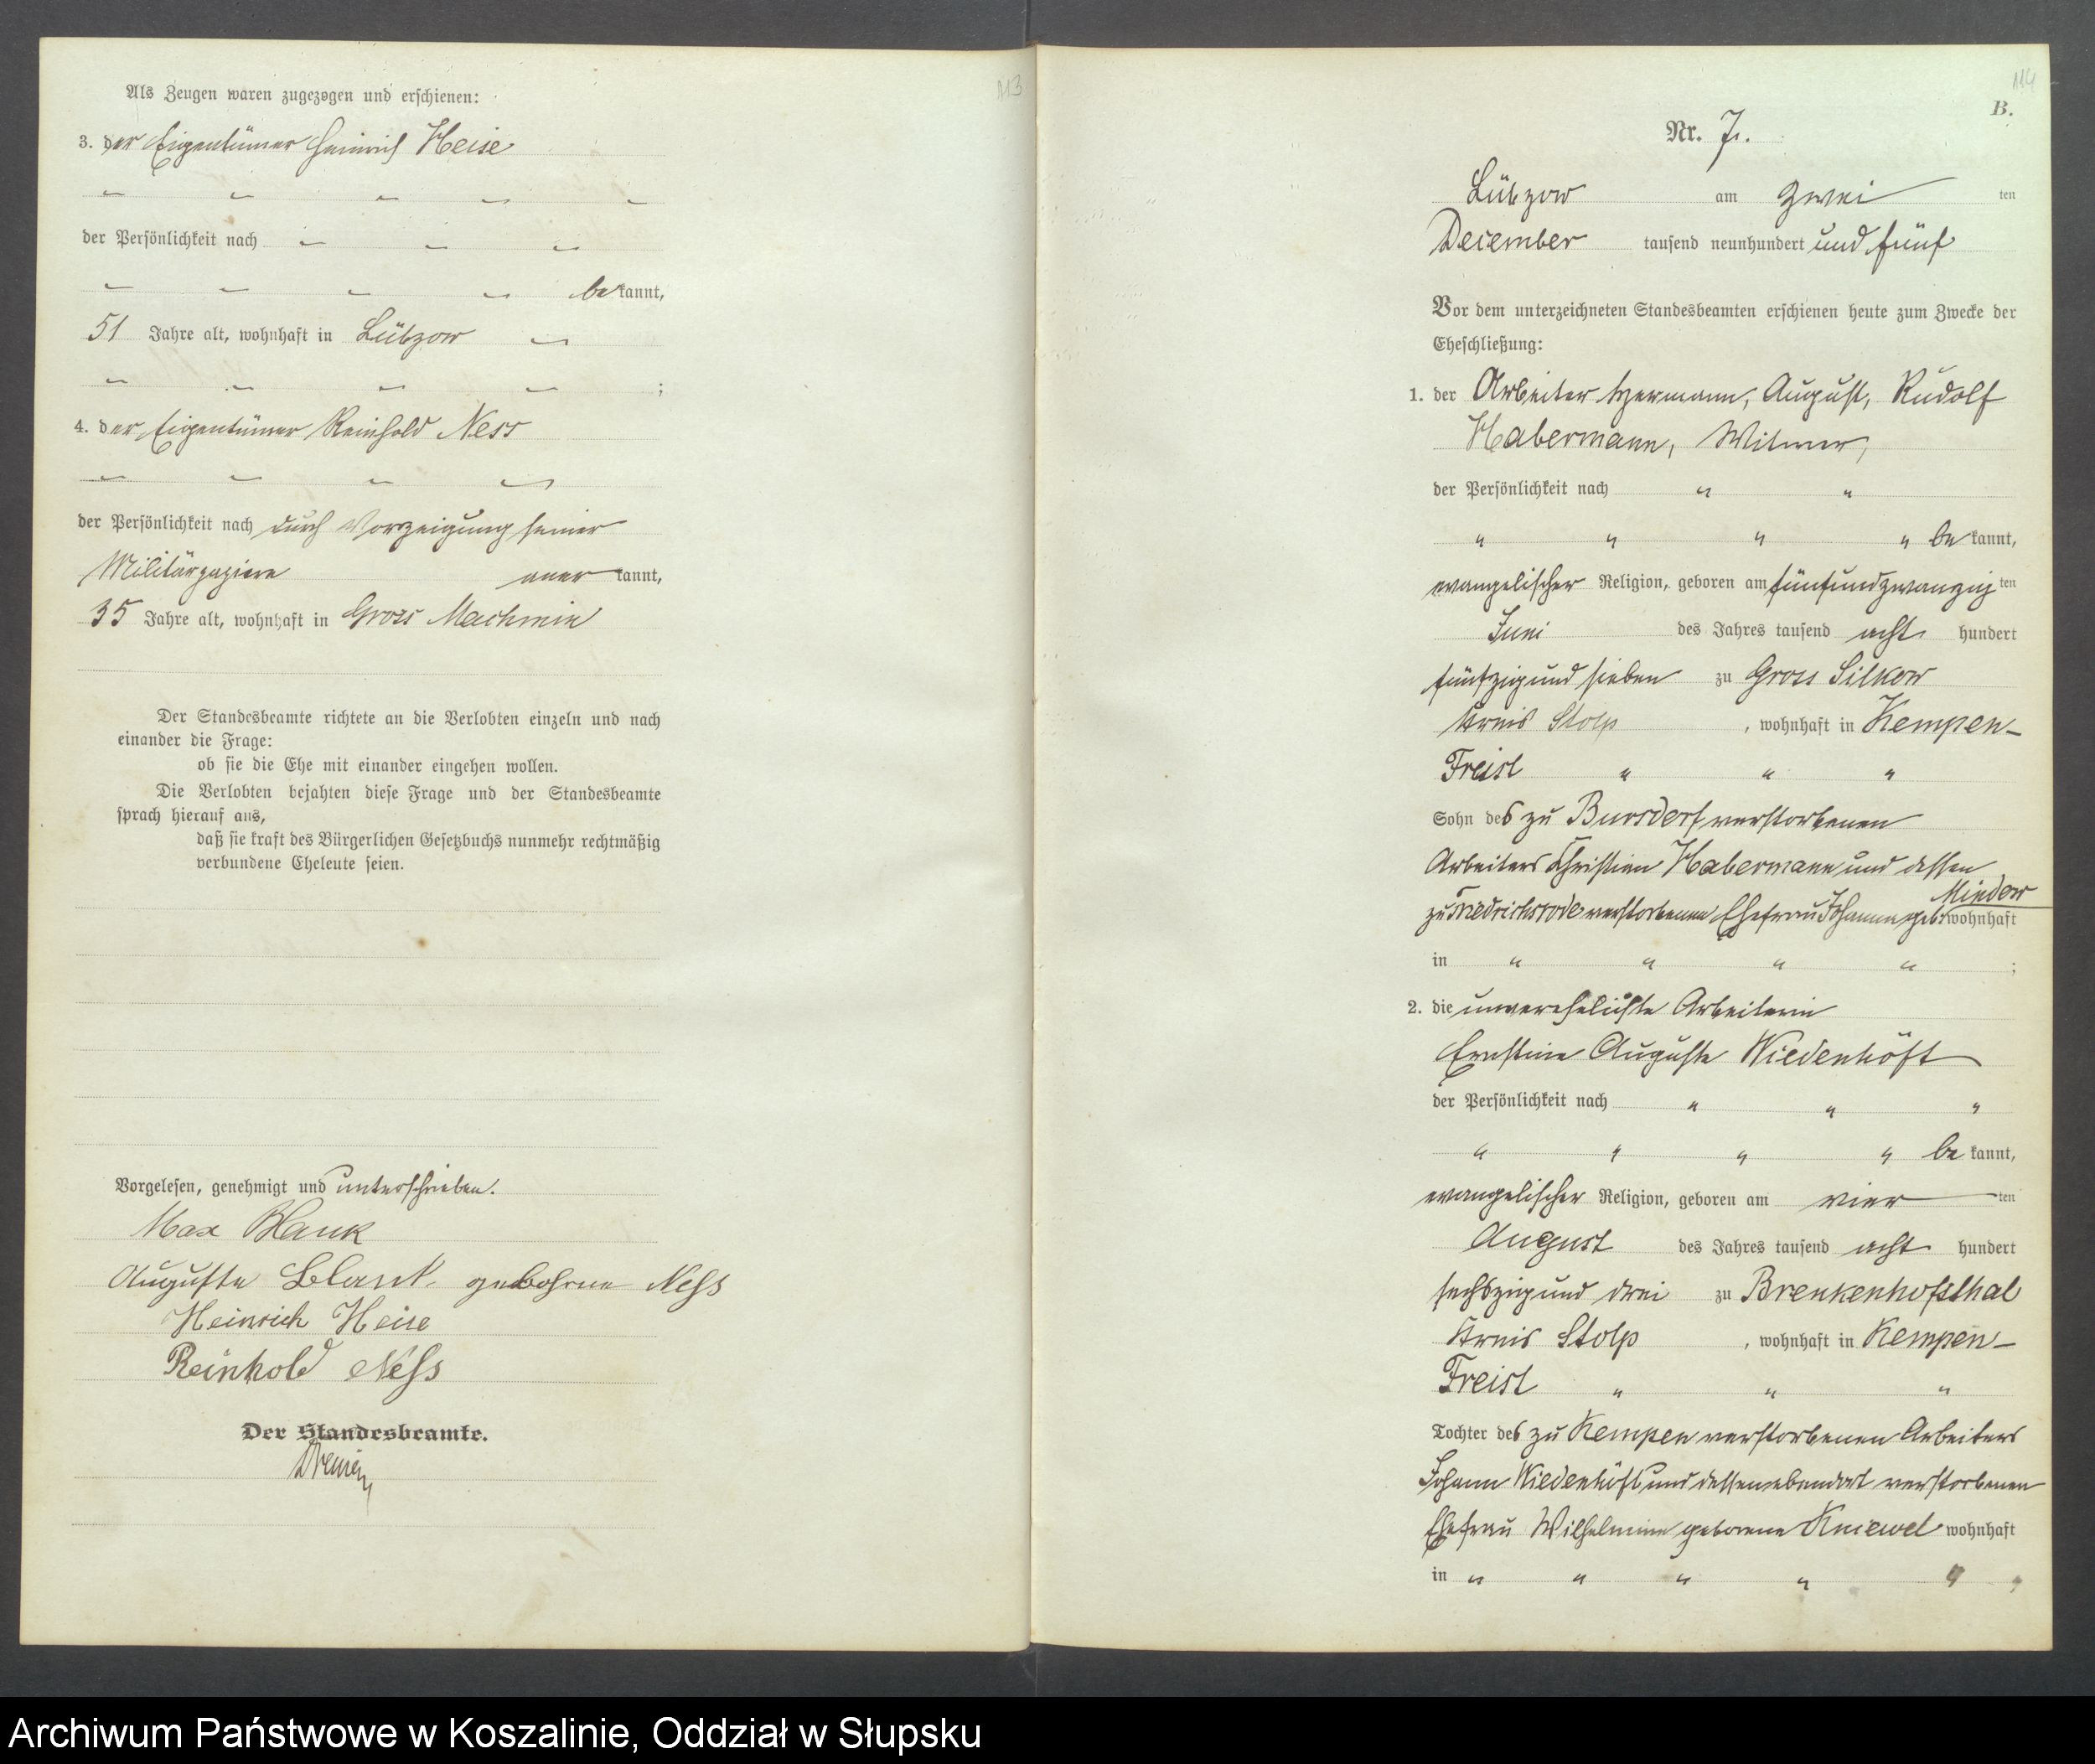 113
Als Zeugen waren zugezogen und erschienen:
3. der Eigentümer Heinrich Heise
der Persönlichkeit nach
be kannt,
51 Jahre alt, wohnhaft in Lübzow
;
4. der Eigentümer Reinhold Ness
der Persönlichkeit nach durch Vorzeigung seiner
Militärpapiere aner kannt,
35 Jahre alt, wohnhaft in Gross Machmin
Der Standesbeamte richtete an die Verlobten einzeln und nach
einander die Frage:
ob sie die Ehe mit einander eingehen wollen.
Die Verlobten bejahten diese Frage und der Standesbeamte
sprach hierauf aus,
daß sie kraft des Bürgerlichen Gesetzbuchs nunmehr rechtmäßig
verbundene Eheleute seien.
Vorgelesen, genehmigt und unterschrieben.
Max Blank
Auguste Blank gebohrne Neſs
Heinrich Heise
Reinhold Neſs
Der Standesbeamte.
114
B.
Nr. 7.
Lübzow am zwei ten
December tausend neunhundert und fünf
Vor dem unterzeichneten Standesbeamten erschienen heute zum Zwecke der
Eheschließung:
1. der Arbeiter Hermann, August, Rudolf
Habermann, Witwer,
der Persönlichkeit nach " "
" " " " be kannt,
evangelischer Religion, geboren am fünfundzwanzig ten
Juni des Jahres tausend acht hundert
fünfzig und sieben zu Gross Silkow
Kreis Stolp , wohnhaft in Kempen-
Freist " " "
Sohn des zu Bursdorf verstorbenen
Arbeiters Christian Habermann und dessen
zu Friedrichsrode verstorbenen Ehefrau Johanne geb. Mindow wohnhaft
in " " " " ;
2. die unverehelichte Arbeiterin
Ernstine Auguste Wiedenhöft
der Persönlichkeit nach " " "
" " " " be kannt,
evangelischer Religion, geboren am vier ten
August des Jahres tausend acht hundert
sechszig und drei zu Brenkenhofsthal
Kreis Stolp , wohnhaft in Kempen-
Freist " " "
Tochter des zu Kempen verstorbenen Arbeiters
Johann Wiedenhöft und dessen ebendort verstorbenen
Ehefrau Wilhelmine geborene Kniewel wohnhaft
in " " " " " "
Archiwum Państwowe w Koszalinie, Oddział w Słupsku